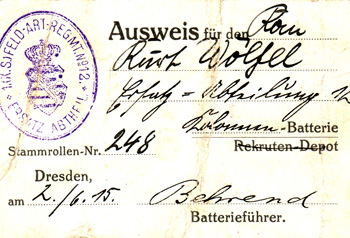 1.K.S.FELD-ART-REGMT.No12.
* ERSATZ ABTHEIL. *
Ausweis für den Kan
Kurt Wölfel
Ersatz = Abteilung 12
Kolonnen-Batterie
Stammrollen-Nr. 248 Rekruten-Depot
Dresden,
am 2./6.15. Behrend
Batterieführer.